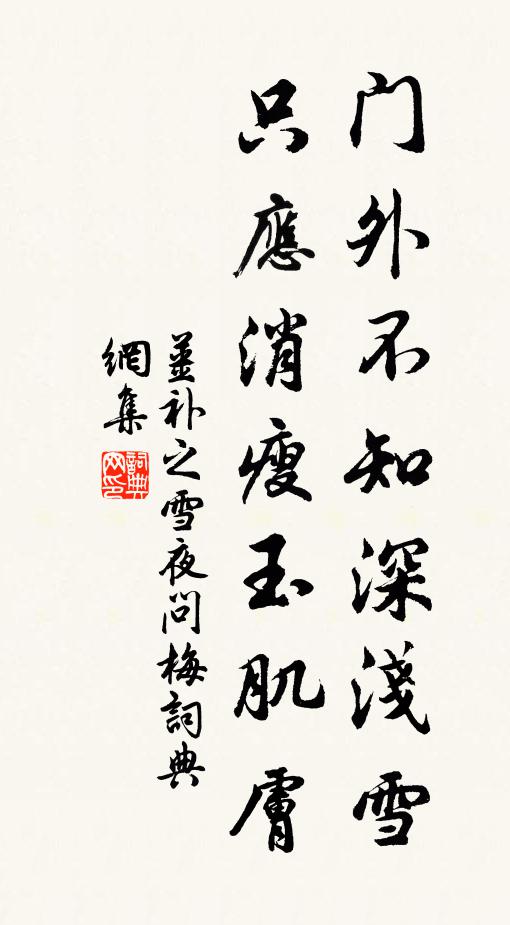 门外不知深淺雪
只應消瘦玉肌膚
薑补之雪夜问梅詞典
網集
詞典
网印